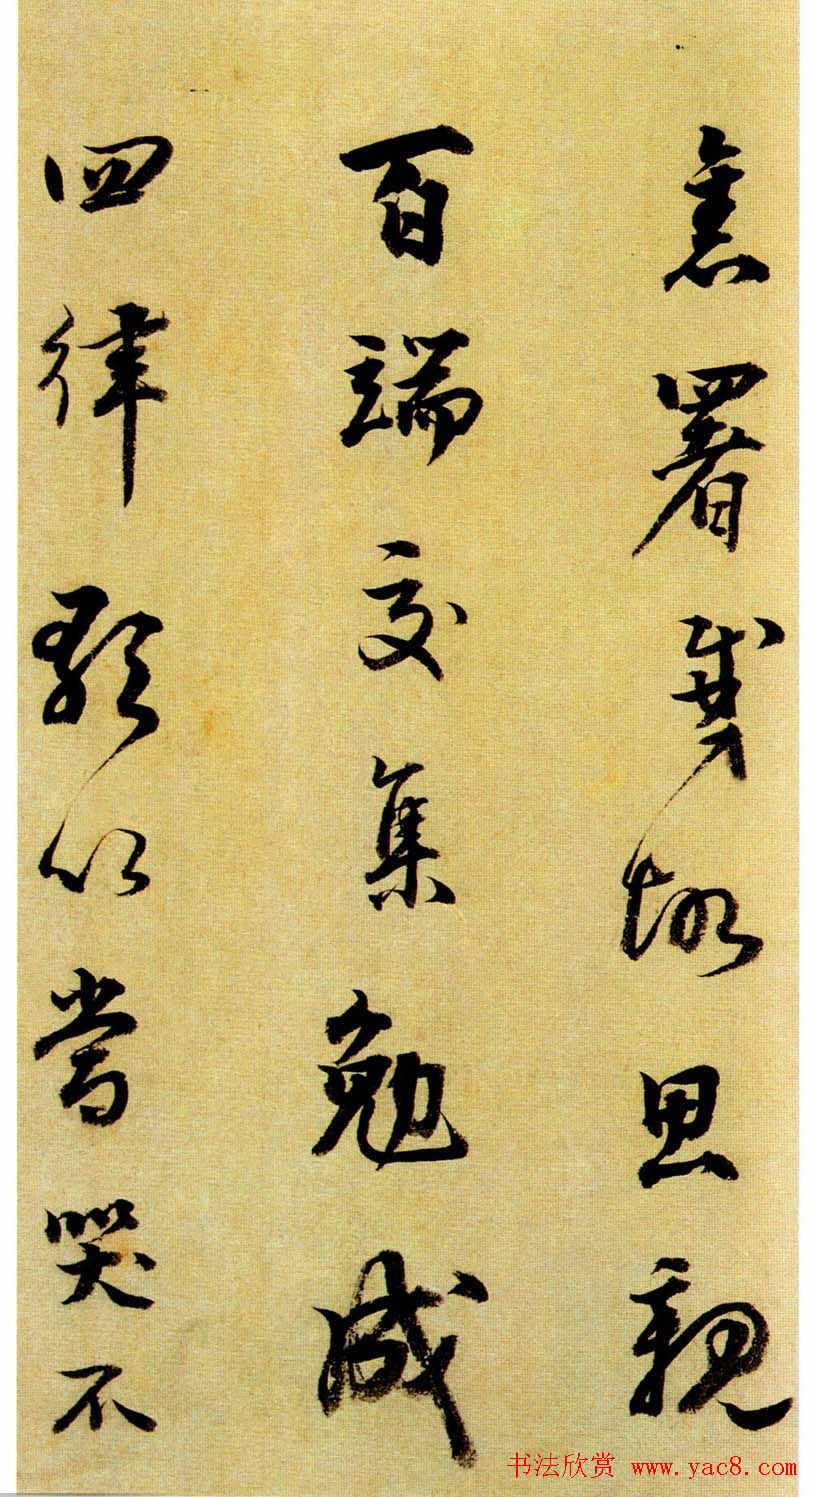 署思親
百端交集勉成
四律歌以當哭不
書法欣赏 www.yac8.com